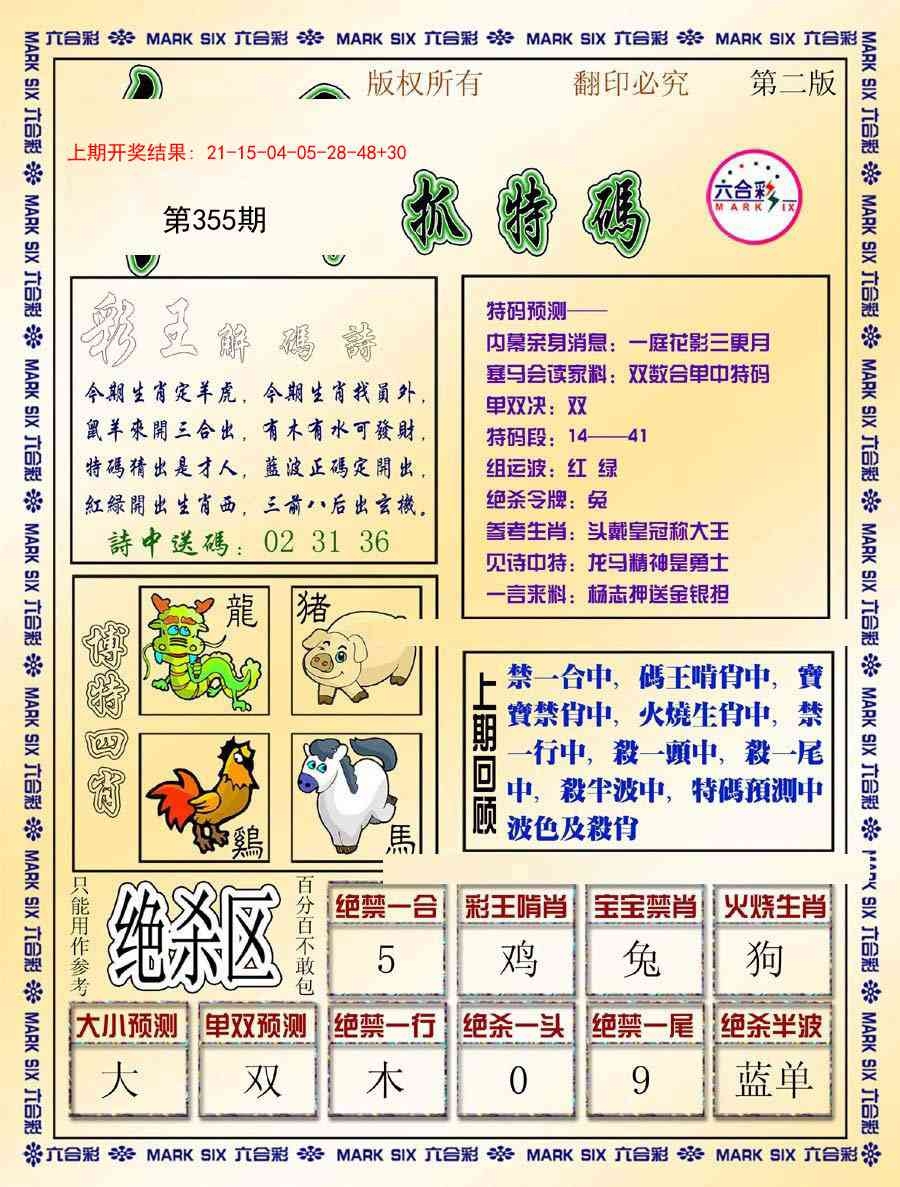 六合彩 MARK SIX 六合彩 MARK SIX 六合彩 MARK SIX 六合彩 MARK SIX 六合彩
版权所有 翻印必究 第二版
上期开奖结果: 21-15-04-05-28-48+30
第355期
抓特碼
六合彩
MARK SIX
彩王解碼詩
今期生肖定羊虎，今期生肖找員外，
鼠羊來開三合出，有木有水可發財，
特碼猜出是才人，藍波正碼定開出，
紅緑開出生肖西，三前八后出玄機。
詩中送碼：02 31 36
特码预测——
内幕亲身消息：一庭花影三更月
塞马会读家料：双数合单中特码
单双决：双
特码段：14——41
组运波：红 绿
绝杀令牌：兔
参考生肖：头戴皇冠称大王
见诗中特：龙马精神是勇士
一言来料：杨志押送金银担
博特四肖
龍
猪
鷄
馬
上期回顾
禁一合中，碼王啃肖中，寶
寶禁肖中，火燒生肖中，禁
一行中，殺一頭中，殺一尾
中，殺半波中，特碼預測中
波色及殺肖
只能用作参考
绝杀区
百分百不敢包
绝禁一合 彩王啃肖 宝宝禁肖 火烧生肖
5 鸡 兔 狗
大小预测 单双预测 绝禁一行 绝杀一头 绝禁一尾 绝杀半波
大 双 木 0 9 蓝单
六合彩 MARK SIX 六合彩 MARK SIX 六合彩 MARK SIX 六合彩 MARK SIX 六合彩